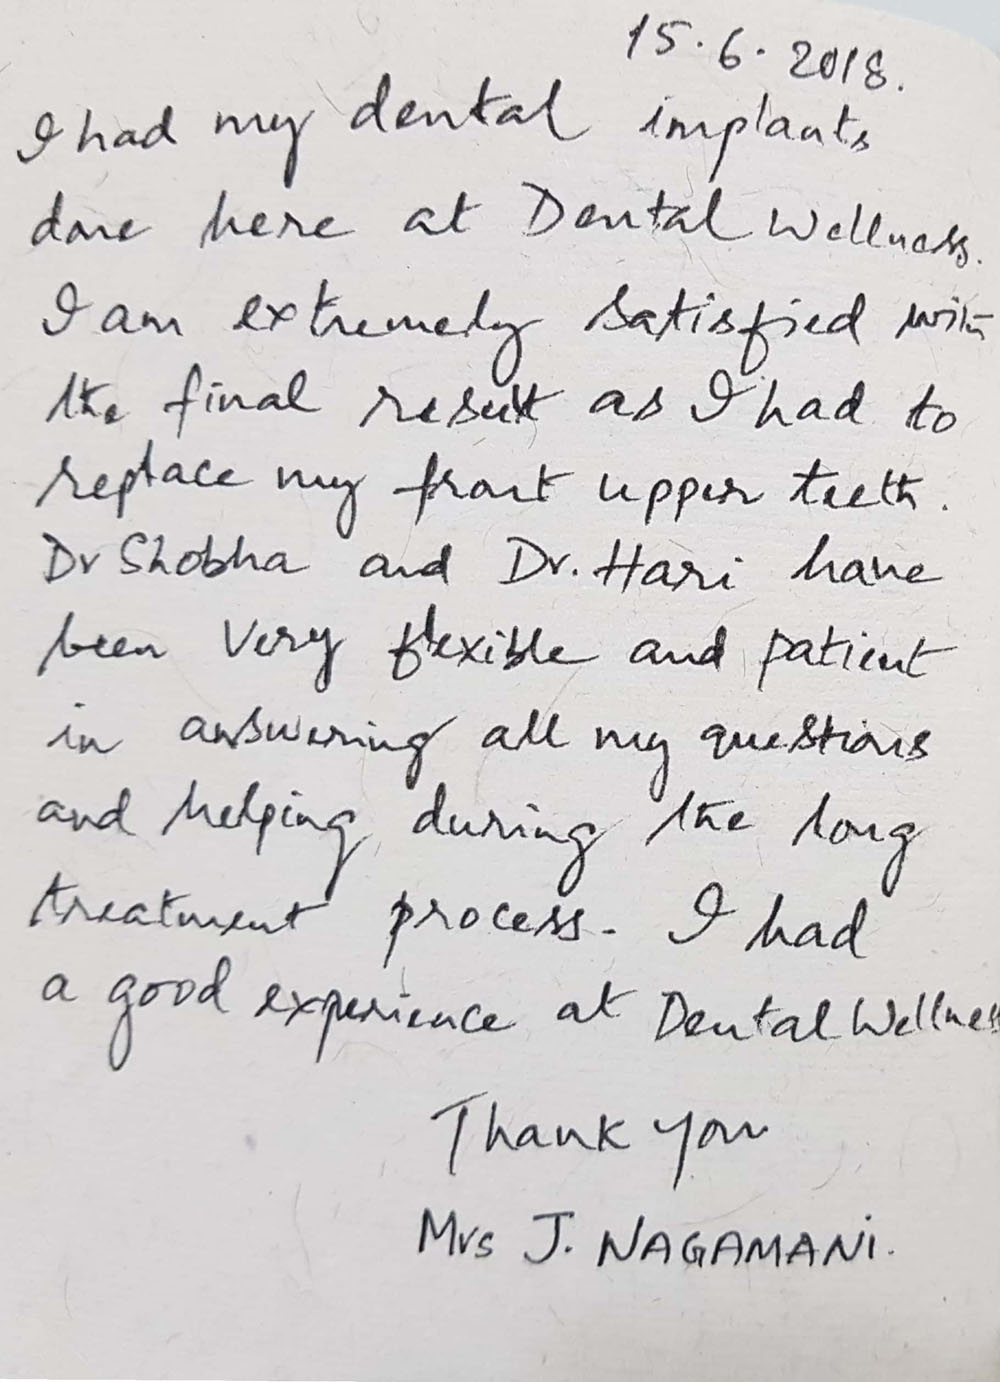 15.6.2018.
I had my dental implants
done here at Dental Wellness.
I am extremely satisfied with
the final result as I had to
replace my front upper teeth.
Dr Shobha and Dr. Hari have
been very flexible and patient
in answering all my questions
and helping during the long
treatment process. I had
a good experience at Dental Wellness
Thank you
Mrs J. NAGAMANI.